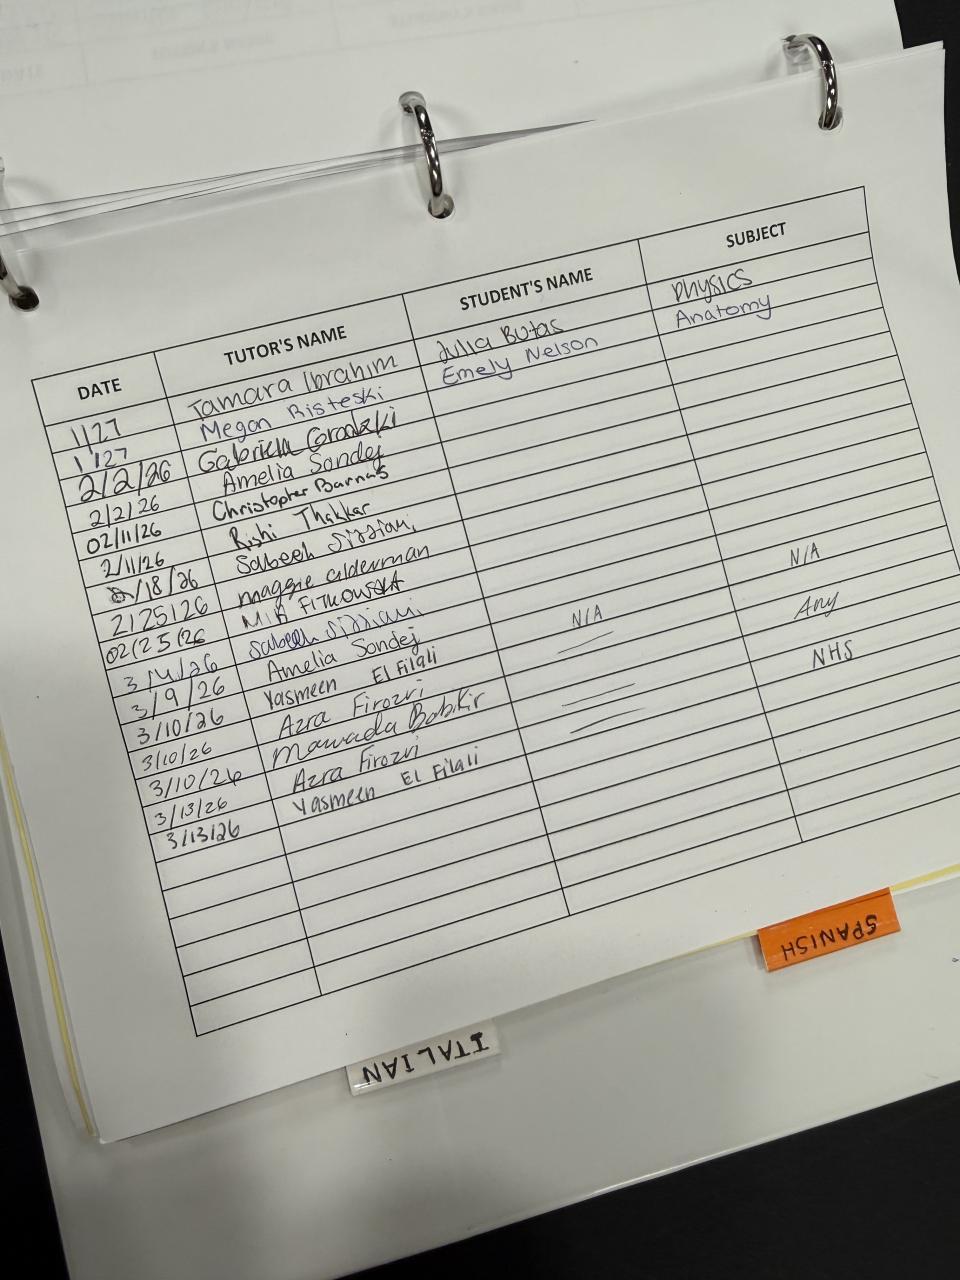 DATE TUTOR'S NAME STUDENT'S NAME SUBJECT
1/27 Tamara Ibrahim Julia Butas physics
1/27 Megan Risteski Emely Nelson Anatomy
2/2/26 Gabriela Grodzki
2/2/26 Amelia Sondej
02/11/26 Christopher Barnas
2/11/26 Rishi Thakkar
2/18/26 Sabeeh
2/25/26 maggie alderman
02/25/26 MIA FITKOWSKA
3/4/26 Sabeeh
3/9/26 Amelia Sondej
3/10/26 Yasmeen El Filali N/A N/A
3/10/26 Azra Firozvi
3/10/26 Mawada Babikir Any
3/13/26 Azra Firozvi
3/13/26 Yasmeen El Filali NHS
SPANISH
ITALIAN